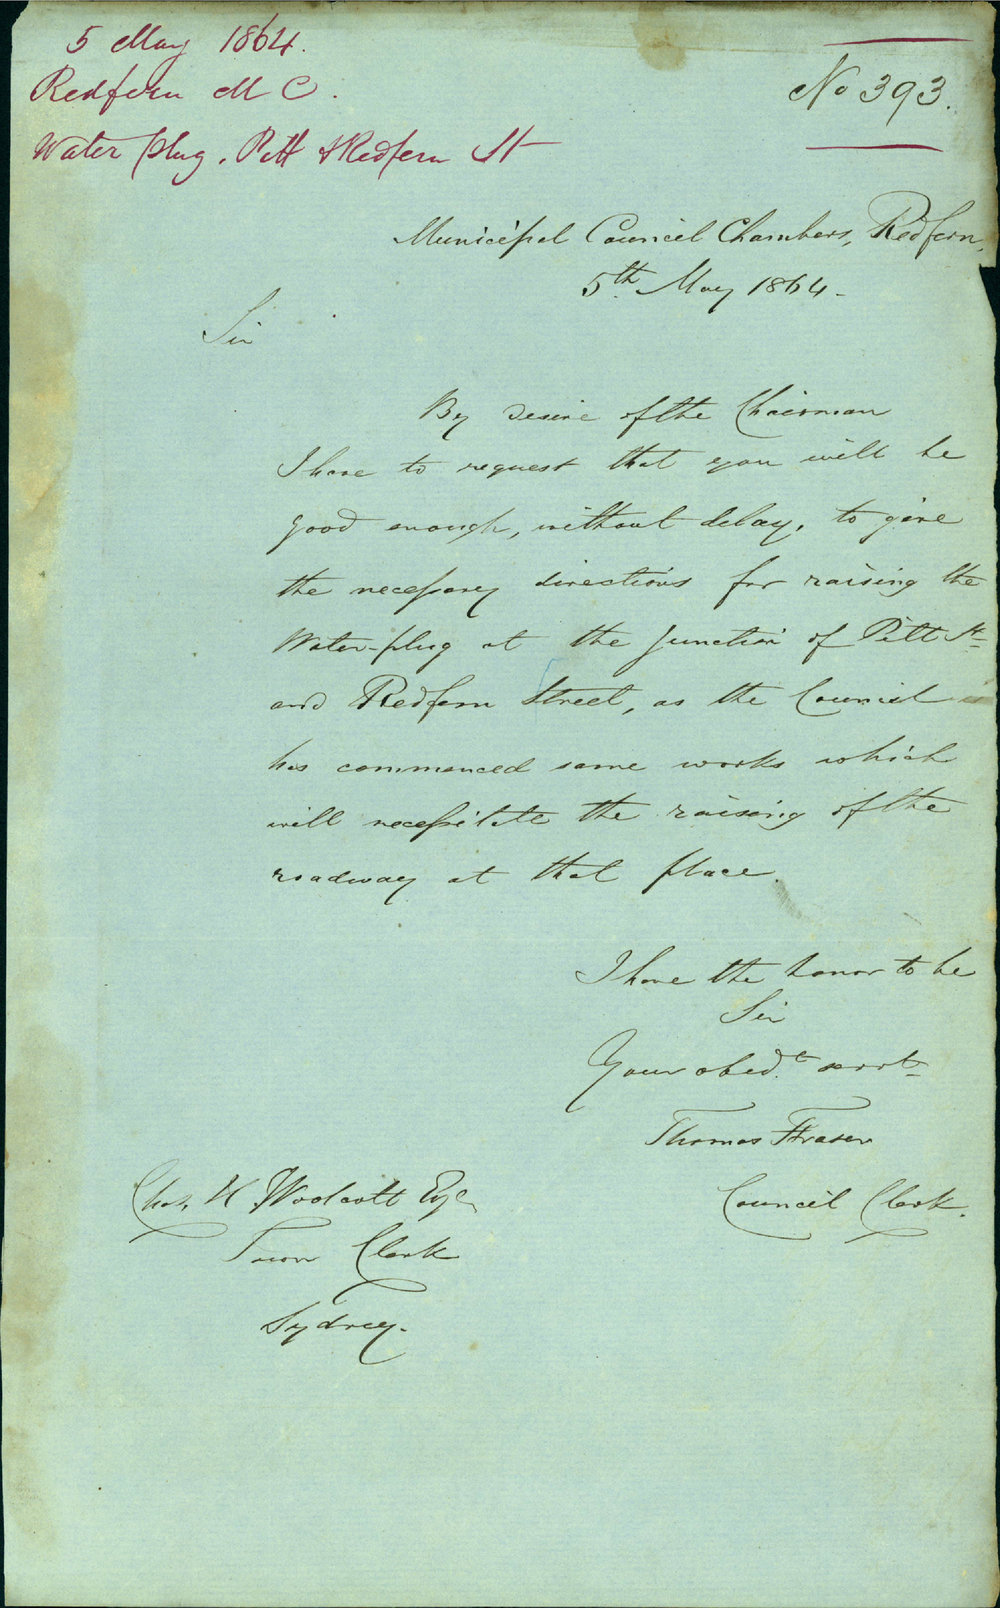 5 May 1864.
Redfern M C.
Water plug. Pitt & Redfern St
No 393.
Municipal Council Chambers, Redfern,
5th May 1864-
Sir
By desire of the Chairman
I have to request that you will be
good enough, without delay, to give
the necessary directions for raising the
Water-plug at the junction of Pitt St
and Redfern Street, as the Council
has commenced some works which
will necessitate the raising of the
roadway at that place.
I have the honor to be
Sir
Your obedt servt
Thomas Fraser
Council Clerk.
Chas. H Woolcott Esqr
Town Clerk
Sydney.